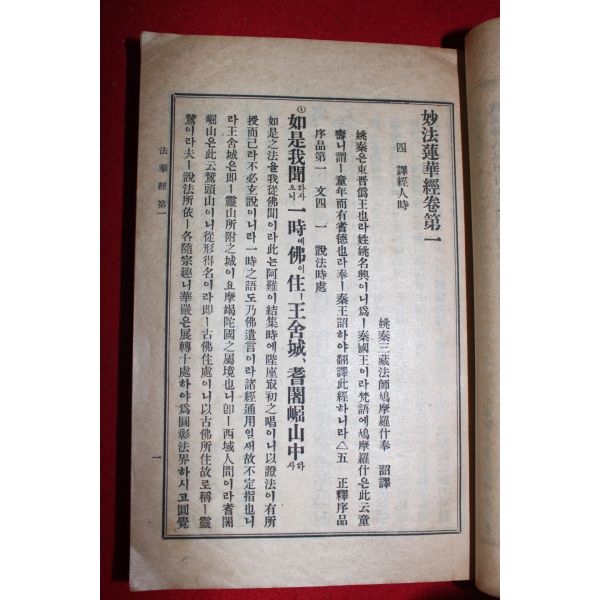 妙法蓮華經卷第一
四 譯經人時
姚秦三藏法師鳩摩羅什奉 詔譯
姚秦은東晋僞王也라姓姚名興이니爲ㅣ秦國王이라梵語에鳩摩羅什은此云童
壽니謂ㅣ童年而有耆德也라奉ㅣ秦王詔하야翻譯此經하니라△五 正釋序品
序品第一 文四 一 說法時處
①如是我聞하사오니一時에佛이住ㅣ王舍城、耆闍崛山中하사
如是之法을我從佛聞이라此는阿難이結集時에陞座最初之唱이니以證法이有所
授而已라不必玄說이니라一時之語도乃佛遺言이라諸經通用일새故不定指也니
라王舍城은即ㅣ靈山所附之城이요摩竭陀國之屬境也니卽ㅣ西域人間이라耆闍
崛山은此云鷲頭山이니從形得名이라即ㅣ古佛住處이니以古佛所住故로稱ㅣ靈
鷲이라夫ㅣ說法所依ㅣ各隨宗趣니華嚴은展轉十處하야爲圓彰法界하시고圓覺
法華經 第一
一